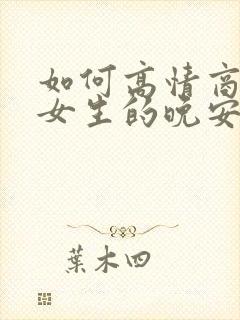 如何高情商
女生的晚安
葉木四